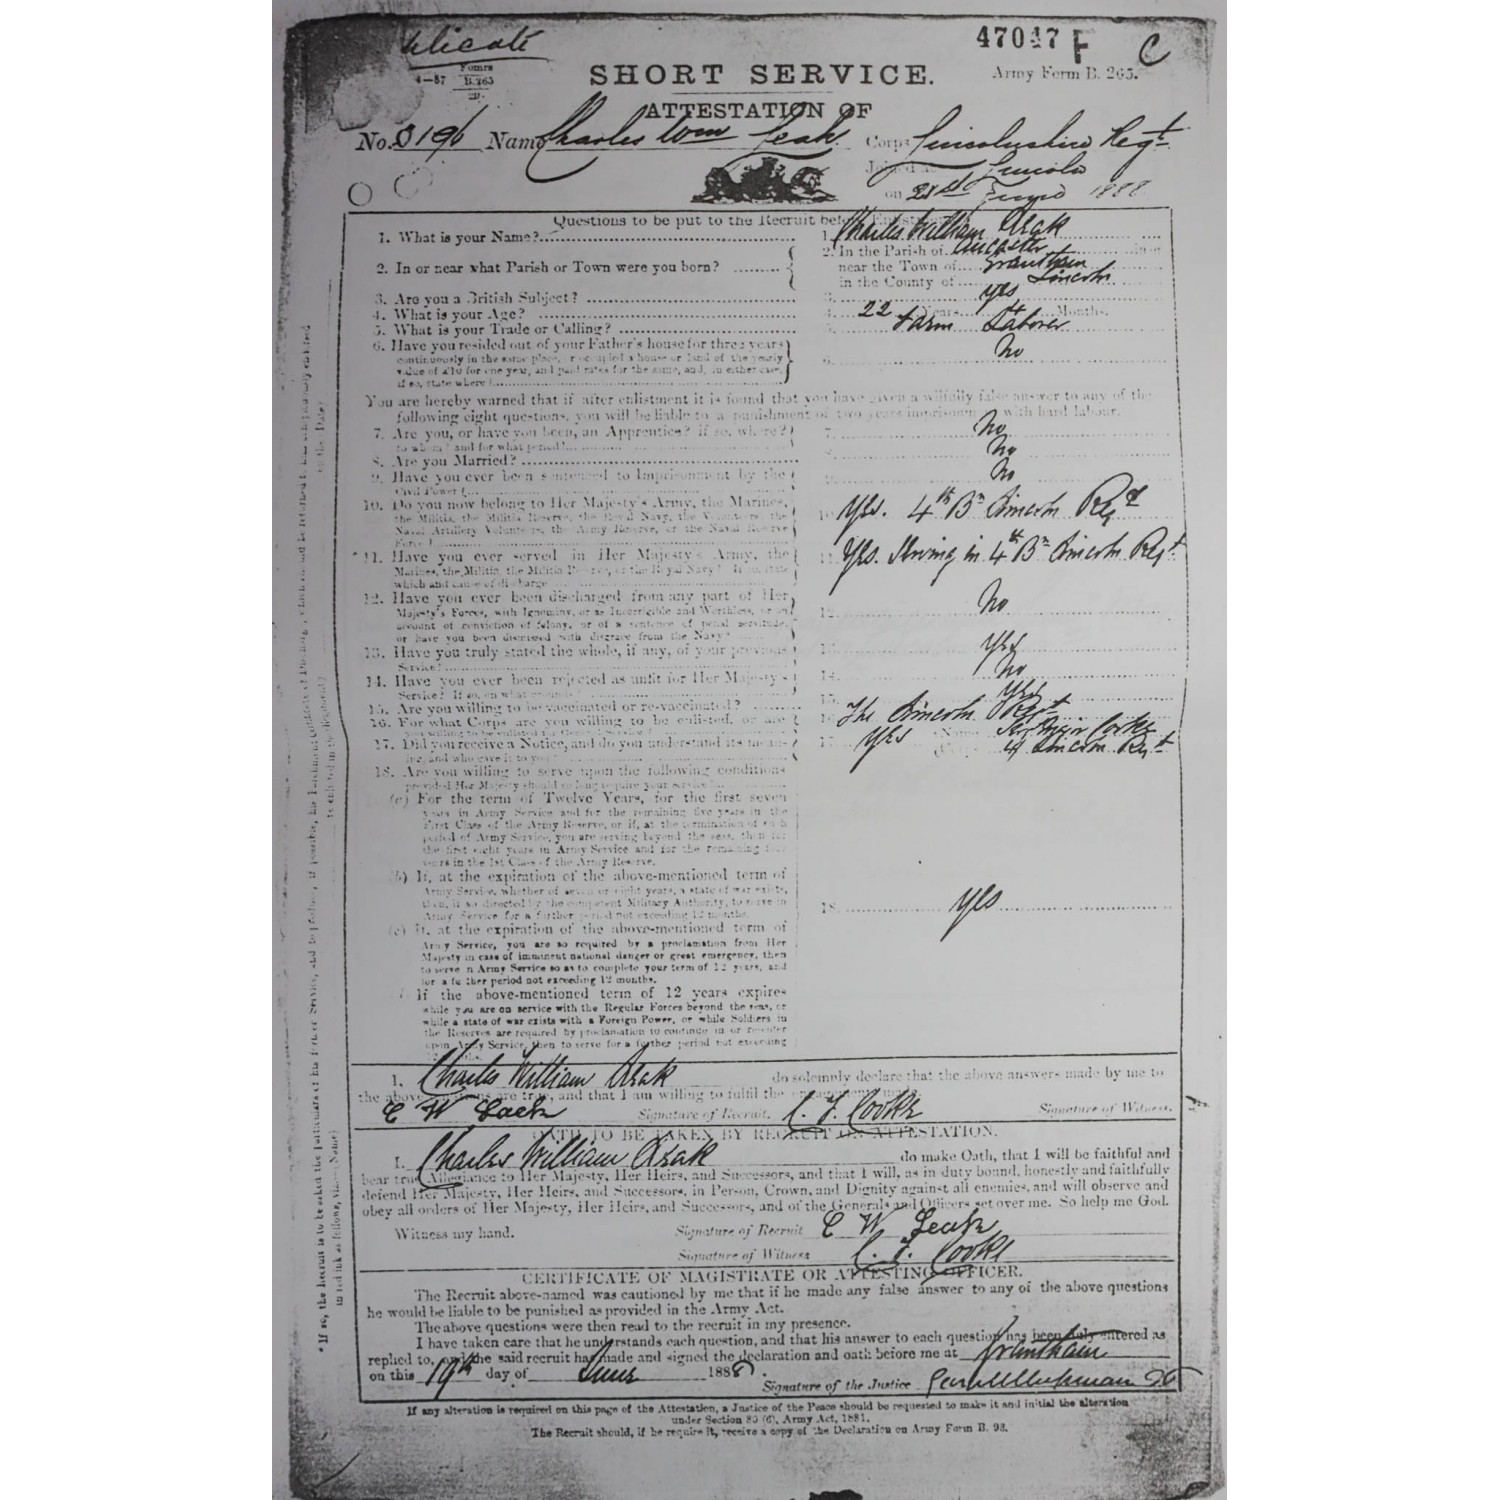 47047 F C
Forms
4—87 B.265
SHORT SERVICE.
Army Form B. 265.
ATTESTATION OF
No. Name Charles Wm Leak Corps Lincolnshire Regt
Joined at Lincoln
on 21st 1888
Questions to be put to the Recruit before Enlistment
1. What is your Name? 1. Charles William Leak
2. In or near what Parish or Town were you born? 2. In the Parish of Ancaster in or
near the Town of Grantham
in the County of Lincoln
3. Are you a British Subject? 3. yes
4. What is your Age? 4. 22 Years Months.
5. What is your Trade or Calling? 5. Farm Laborer
6. Have you resided out of your Father's house for three years 6. No
continuously in the same place, or occupied a house or land of the yearly
value of £10 for one year, and paid rates for the same, and, in either case,
if so, state where?
You are hereby warned that if after enlistment it is found that you have given a wilfully false answer to any of the
following eight questions, you will be liable to a punishment of two years imprisonment with hard labour.
7. Are you, or have you been, an Apprentice? if so, where? 7. No
to whom? and for what period?
8. Are you Married? No
9. Have you ever been sentenced to Imprisonment by the No
Civil Power?
10. Do you now belong to Her Majesty's Army, the Marines, 10. Yes. 4th Bn Lincoln Regt
the Militia, the Militia Reserve, the Royal Navy, the Volunteers, the
Naval Artillery Volunteers, the Army Reserve, or the Naval Reserve
Force?
*11. Have you ever served in Her Majesty's Army, the 11. Yes. Serving in 4th Bn Lincoln Regt
Marines, the Militia, the Militia Reserve, or the Royal Navy? If so, state
which and cause of discharge
12. Have you ever been discharged from any part of Her 12. No
Majesty's Forces, with Ignominy, or as Incorrigible and Worthless, or on
account of conviction of felony, or of a sentence of penal servitude,
or have you been dismissed with disgrace from the Navy?
13. Have you truly stated the whole, if any, of your previous 13. yes
Service?
14. Have you ever been rejected as unfit for Her Majesty's 14. No
Service? If so, on what grounds?
15. Are you willing to be vaccinated or re-vaccinated? 15. yes
16. For what Corps are you willing to be enlisted, or are 16. The Lincoln Regt
you willing to be enlisted for General Service?
17. Did you receive a Notice, and do you understand its mean- 17. yes Name Cooke
ing, and who gave it to you? Corps 4 Lincoln Regt
18. Are you willing to serve upon the following conditions
provided Her Majesty should so long require your service?
(a) For the term of Twelve Years, for the first seven
years in Army Service and for the remaining five years in the
First Class of the Army Reserve, or if, at the termination of such
period of Army Service, you are serving beyond the seas, then for
the first eight years in Army Service and for the remaining four
years in the 1st Class of the Army Reserve.
(b) If, at the expiration of the above-mentioned term of
Army Service, whether of seven or eight years, a state of war exists,
then, if so directed by the competent Military Authority, to serve in
Army Service for a further period not exceeding 12 months.
18. yes
(c) If, at the expiration of the above-mentioned term of
Army Service, you are so required by a proclamation from Her
Majesty in case of imminent national danger or great emergency, then
to serve in Army Service so as to complete your term of 12 years, and
for a further period not exceeding 12 months.
If the above-mentioned term of 12 years expires
while you are on service with the Regular Forces beyond the seas, or
while a state of war exists with a Foreign Power, or while Soldiers in
the Reserves are required by proclamation to continue in or re-enter
upon Army Service, then to serve for a further period not exceeding
12 months.
I, Charles William Leak do solemnly declare that the above answers made by me to
the above questions are true, and that I am willing to fulfil the engagements made.
C W Leak Signature of Recruit. C. F. Cooke Signature of Witness.
OATH TO BE TAKEN BY RECRUIT ON ATTESTATION.
I, Charles William Leak do make Oath, that I will be faithful and
bear true Allegiance to Her Majesty, Her Heirs, and Successors, and that I will, as in duty bound, honestly and faithfully
defend Her Majesty, Her Heirs, and Successors, in Person, Crown, and Dignity against all enemies, and will observe and
obey all orders of Her Majesty, Her Heirs, and Successors, and of the Generals and Officers set over me. So help me God.
Witness my hand. Signature of Recruit C W Leak
Signature of Witness C. F. Cooke
CERTIFICATE OF MAGISTRATE OR ATTESTING OFFICER.
The Recruit above-named was cautioned by me that if he made any false answer to any of the above questions
he would be liable to be punished as provided in the Army Act.
The above questions were then read to the recruit in my presence.
I have taken care that he understands each question, and that his answer to each question has been duly entered as
replied to, and the said recruit has made and signed the declaration and oath before me at Grantham
on this 19th day of June 1888.
Signature of the Justice
If any alteration is required on this page of the Attestation, a Justice of the Peace should be requested to make it and initial the alteration
under Section 80 (6), Army Act, 1881.
The Recruit should, if he require it, receive a copy of the Declaration on Army Form B. 93.
* If so, the Recruit is to be asked the particulars of his former Service, and to produce, if possible, his Parchment Certificate of Discharge,